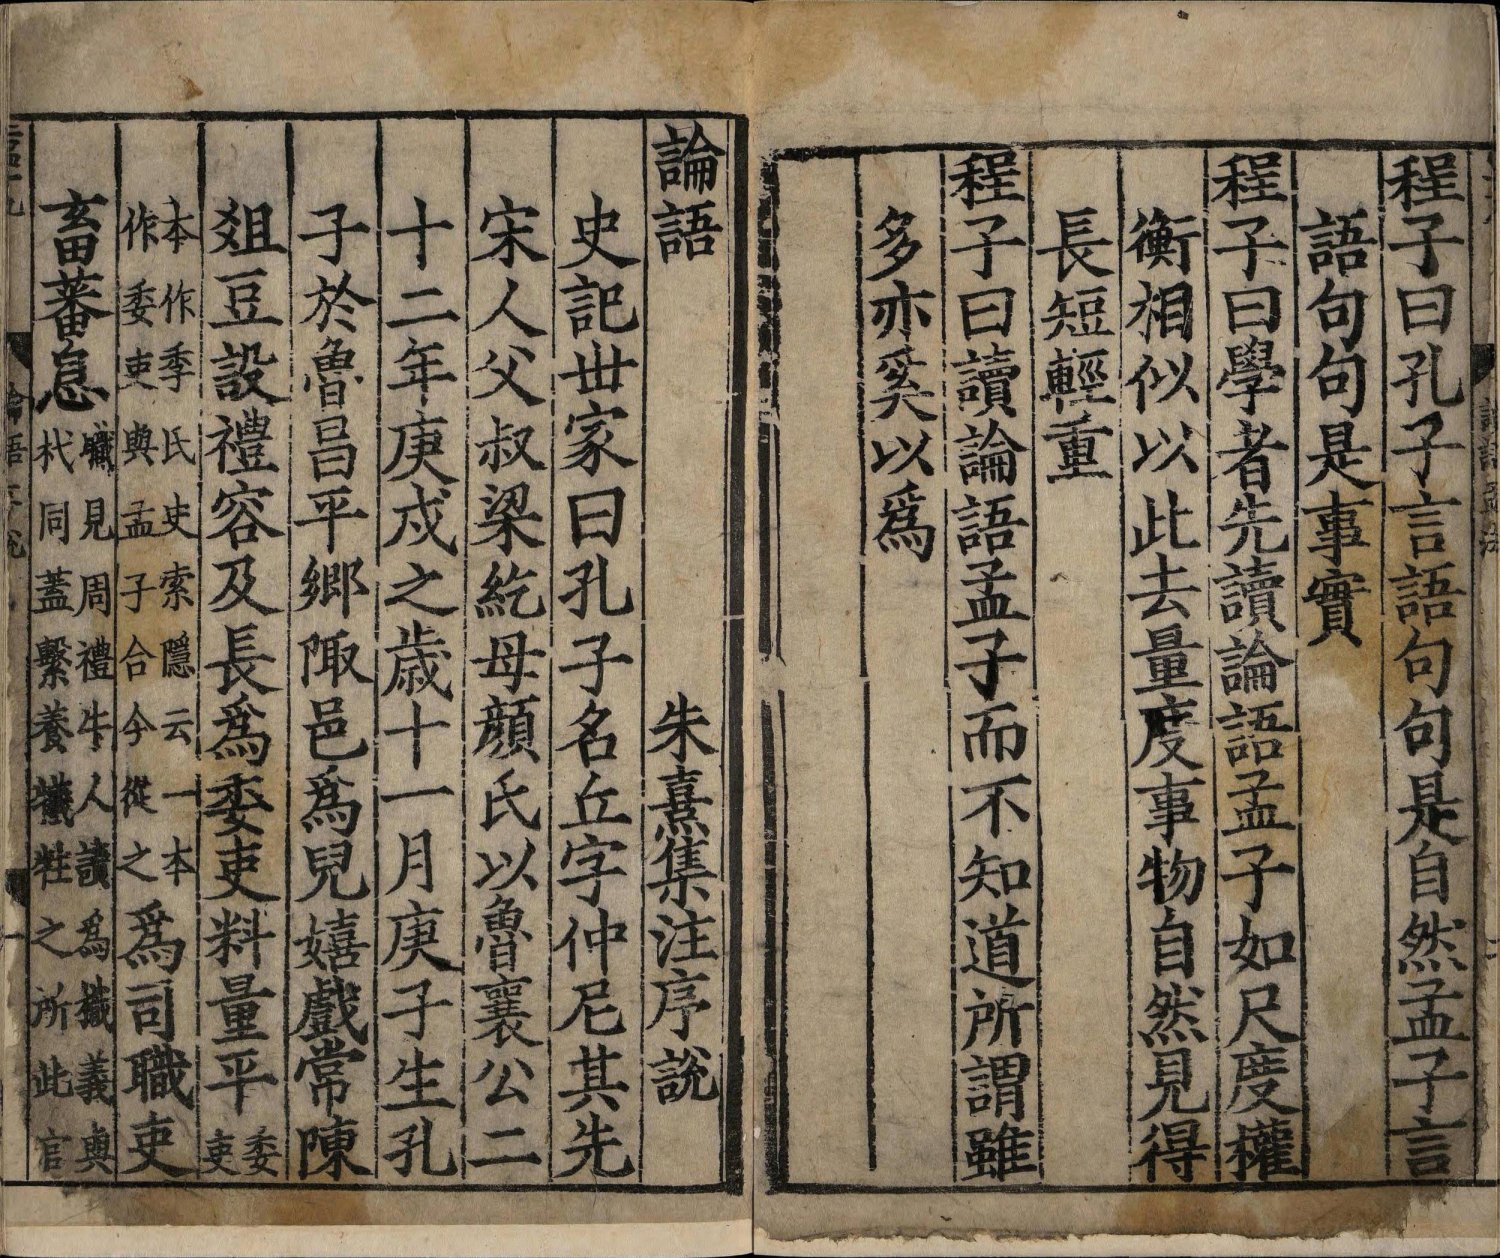 程子曰孔子言語句句是自然孟子言
語句句是事實
程子曰學者先讀論語孟子如尺度權
衡相似以此去量度事物自然見得
長短輕重
程子曰讀論語孟子而不知道所謂雖
多亦奚以為
論語 朱熹集注序說
史記世家曰孔子名丘字仲尼其先
宋人父叔梁紇母顏氏以魯襄公二
十二年庚戌之歲十一月庚子生孔
子於魯昌平鄉陬邑為兒嬉戲常陳
爼豆設禮容及長為委吏料量平委
吏
本作季氏史索隱云一本
作委吏與孟子合今從之為司職吏
畜蕃息職見周禮牛人讀為樴義與
杙同蓋繫養犧牲之所此官
論語序說